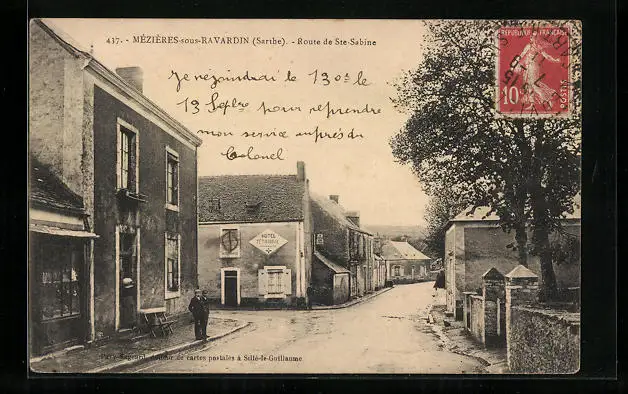 437. - MÉZIÈRES-sous-RAVARDIN (Sarthe). - Route de Ste-Sabine
Je rejoindrai le 130e le
13 Septbre pour reprendre
mon service auprès du
Colonel
REPUBLIQUE FRANÇAISE
10
POSTES
HOTEL
de cartes postales à Sillé-le-Guillaume